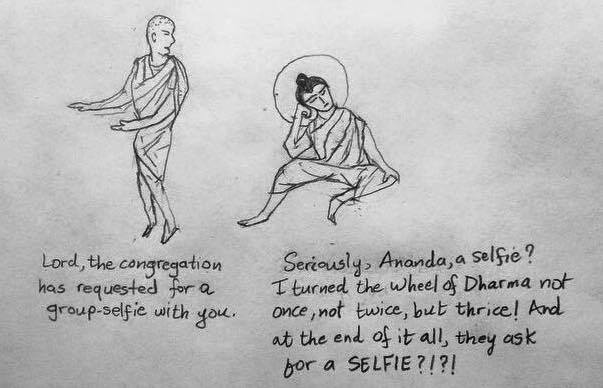 Lord, the congregation
has requested for a
group-selfie with you.
Seriously, Ananda, a selfie?
I turned the wheel of Dharma not
once, not twice, but thrice! And
at the end of it all, they ask
for a SELFIE?!?!